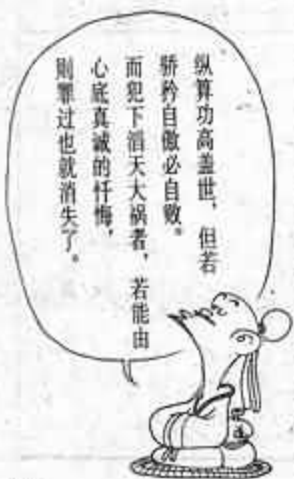 纵算功高盖世，但若
骄矜自傲必自败。
而犯下滔天大祸者，若能由
心底真诚的忏悔，
则罪过也就消失了。